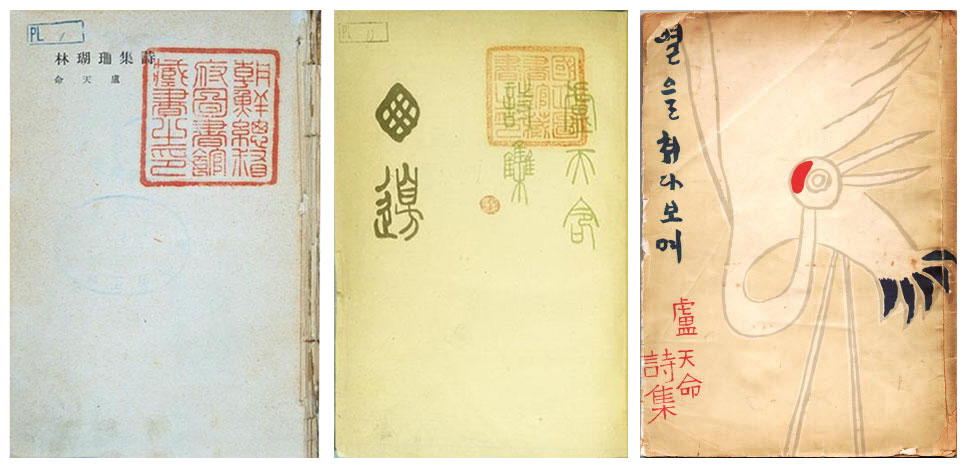 PL
詩集珊瑚林
盧天命
朝鮮總督
府圖書館
藏書之印
PL 11
盧天命
詩集
窓邊
별을 쳐다보며
盧天命
詩集